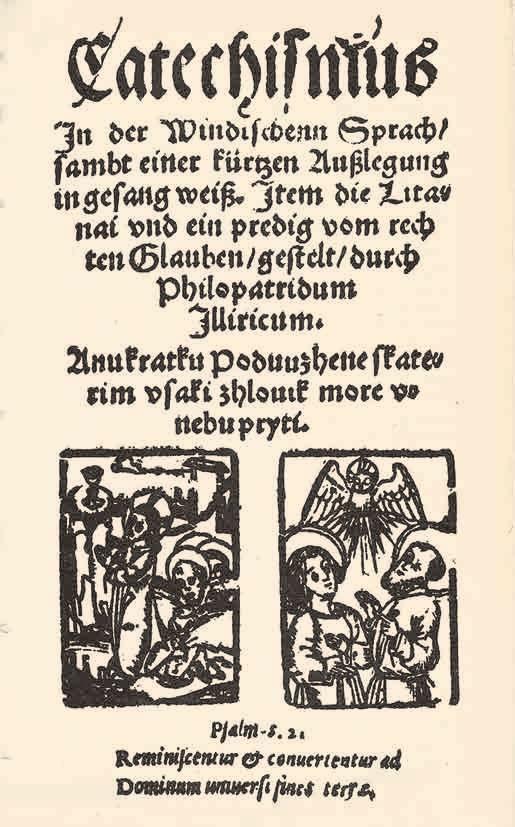 Catechismus
In der Windischenn Sprach/
sambt einer kürtzen Außlegung
in gesang weiß. Item die Lita⸗
nai vnd ein predig vom rech
ten Glauben/gestelt/durch
Philopatridum
Illiricum.
Anukratku Poduuzhene skate⸗
rim vsaki zhlouik more v⸗
nebu pryti.
Psalm⸗ 2.
Reminiscentur & conuertentur ad
Dominum uniuersi fines terræ.